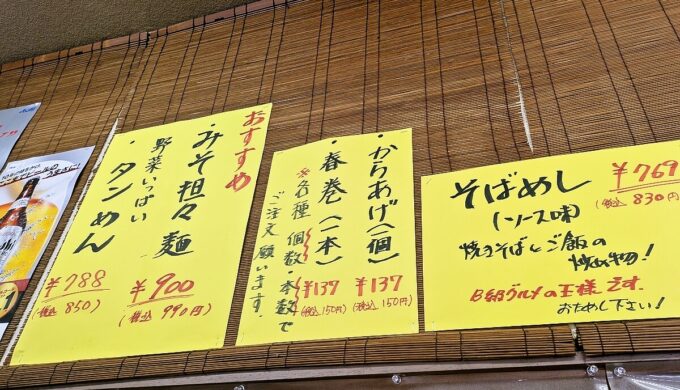 おすすめ
・みそ担々麺
¥900
(税込 990円)
野菜いっぱい
・タンめん
¥788
(税込 850)
・からあげ(一個)
¥137
(税込 150円)
・春巻(一本)
¥137
(税込 150円)
※各種個数・本数で
ご注文願います。
そばめし
(ソース味)
¥769
(税込 830円)
焼きそばとご飯の
炒め物!
B級グルメの王様です。
おためし下さい!